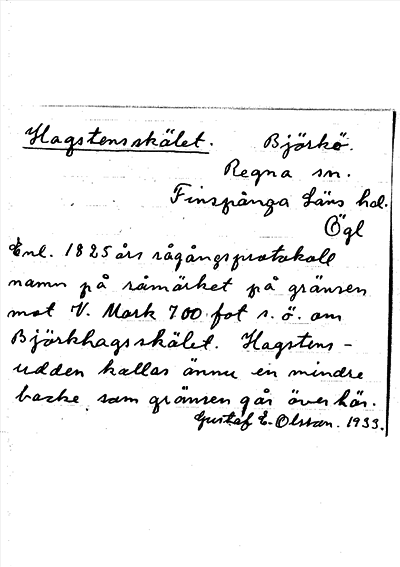 Hagstensskälet. Björkö.
Regna sn.
Finspånga Läns hd.
Ögl
Enl. 1825 års rågångsprotokoll
namn på råmärket på gränsen
mot V. Mark 700 fot s. ö. om
Björkhagsskälet. Hagstens-
udden kallas ännu en mindre
backe som gränsen går över här.
Gustaf E. Olsson. 1933.